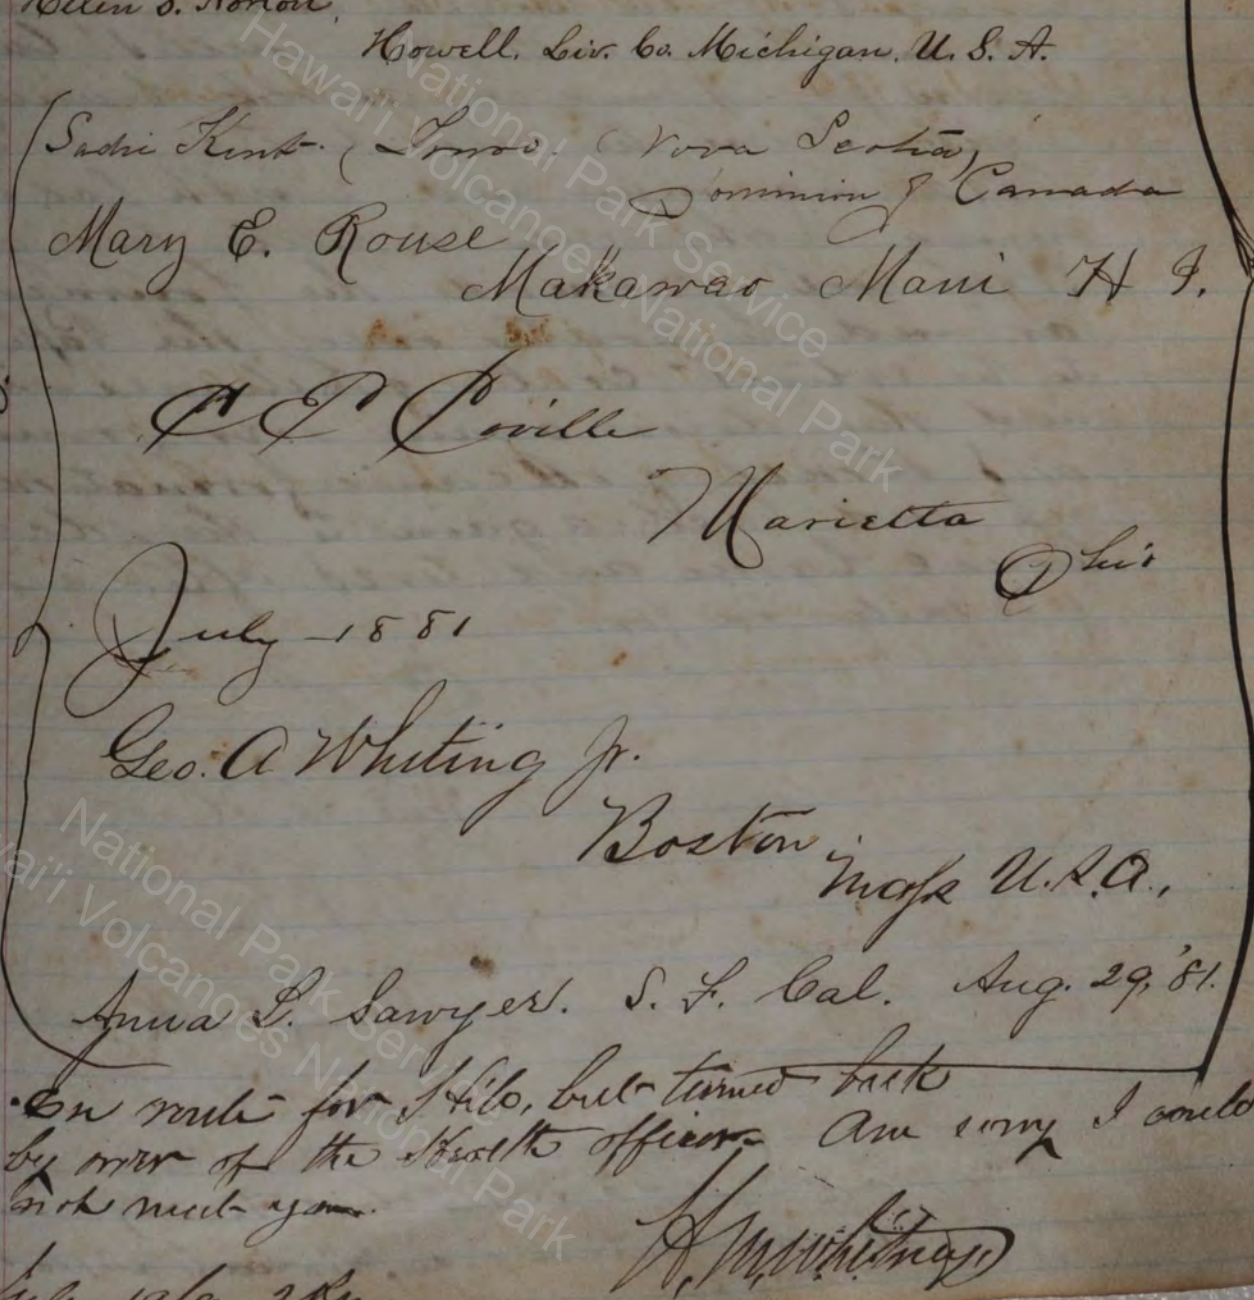 Helen S. Norton
Howell, Liv. Co. Michigan. U. S. A.
Sadie Kent. (Truro. (Nova Scotia,
Dominion of Canada
Mary E. Rouse
Makawao Maui H I.
Coville
Marietta
Ohio
July 1881
Geo. A Whiting Jr.
Boston
Mass U.S.A.,
Anna L. Sawyer. S. F. Cal. Aug. 29, '81.
En route for Hilo, but turned back
by order of the Health officer. Am sorry I could
not meet you.
H. M. Whitney
National Park Service
Hawai'i Volcanoes National Park
National Park Service
Hawai'i Volcanoes National Park